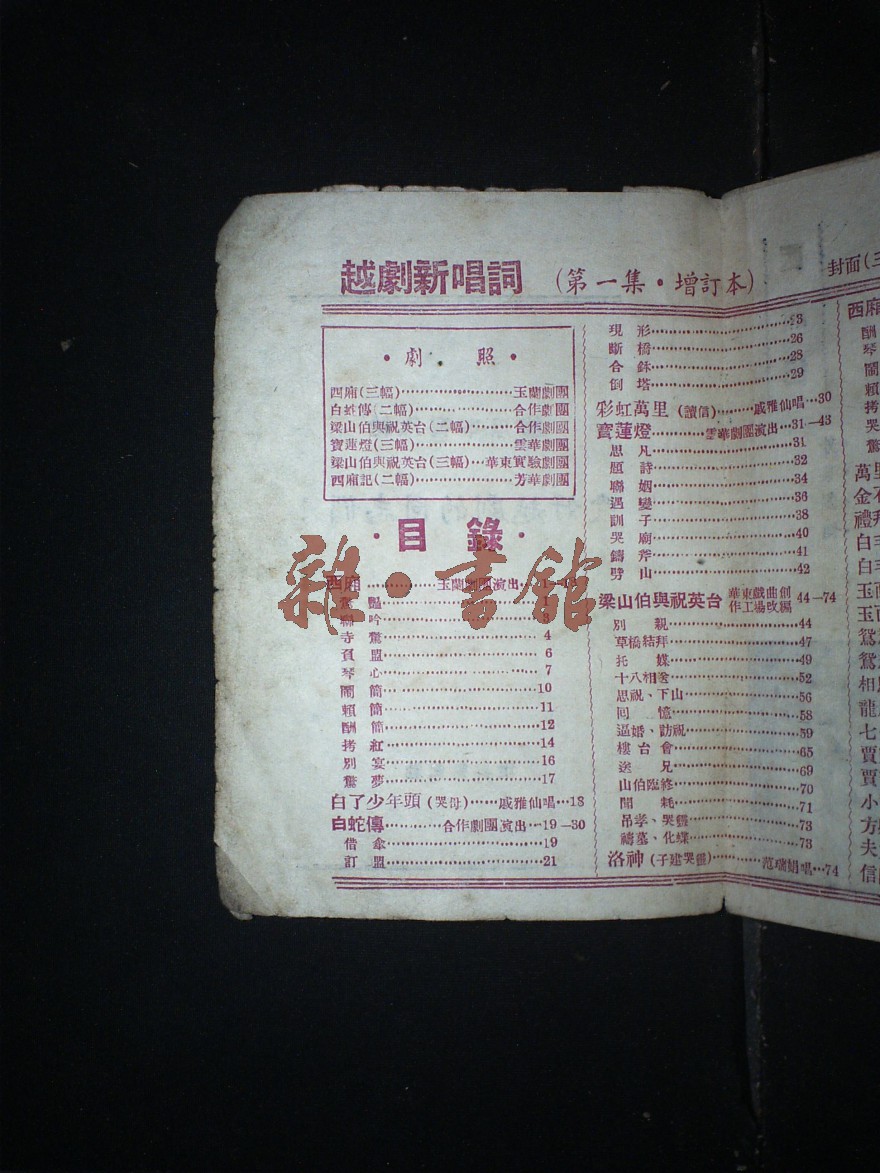 越劇新唱詞 (第一集·增訂本)
·劇 照·
西廂(三幅)……玉蘭劇團
白蛇傳(二幅)……合作劇團
梁山伯與祝英台(二幅)……合作劇團
寶蓮燈(三幅)……雲華劇團
梁山伯與祝英台(三幅)…華東實驗劇團
西廂記(二幅)……芳華劇團
·目錄·
西廂……玉蘭劇團演出
驚豔
聯吟
寺驚……4
負盟……6
琴心……7
鬧簡……10
賴簡……11
酬簡……12
拷紅……14
別宴……16
驚夢……17
白了少年頭(哭母)……戚雅仙唱…18
白蛇傳……合作劇團演出…19—30
借傘……19
訂盟……21
現形……23
斷橋……26
合鉢……28
倒塔……29
彩虹萬里(讀信)……戚雅仙唱…30
寶蓮燈……雲華劇團演出…31—43
思凡……31
題詩……32
聯姻……34
遇變……36
訓子……38
哭廟……40
鑄斧……41
劈山……42
梁山伯與祝英台 華東戲曲創作工場改編 44—74
別親……44
草橋結拜……47
托媒……49
十八相送……52
思祝、下山……56
回憶……58
逼婚、訪祝……59
樓台會……65
送兄……69
山伯臨終……70
聞耗……71
吊孝、哭靈……73
禱墓、化蝶……73
洛神(子建哭靈)……范瑞娟唱…74
封面(三
西廂
酬
琴
鬧
賴
拷
哭
驚
萬里
金石
禮拜
白
白
玉
玉
鴛
鴛
相
龍
七
賈
賈
小
方
夫
信
雜·書館